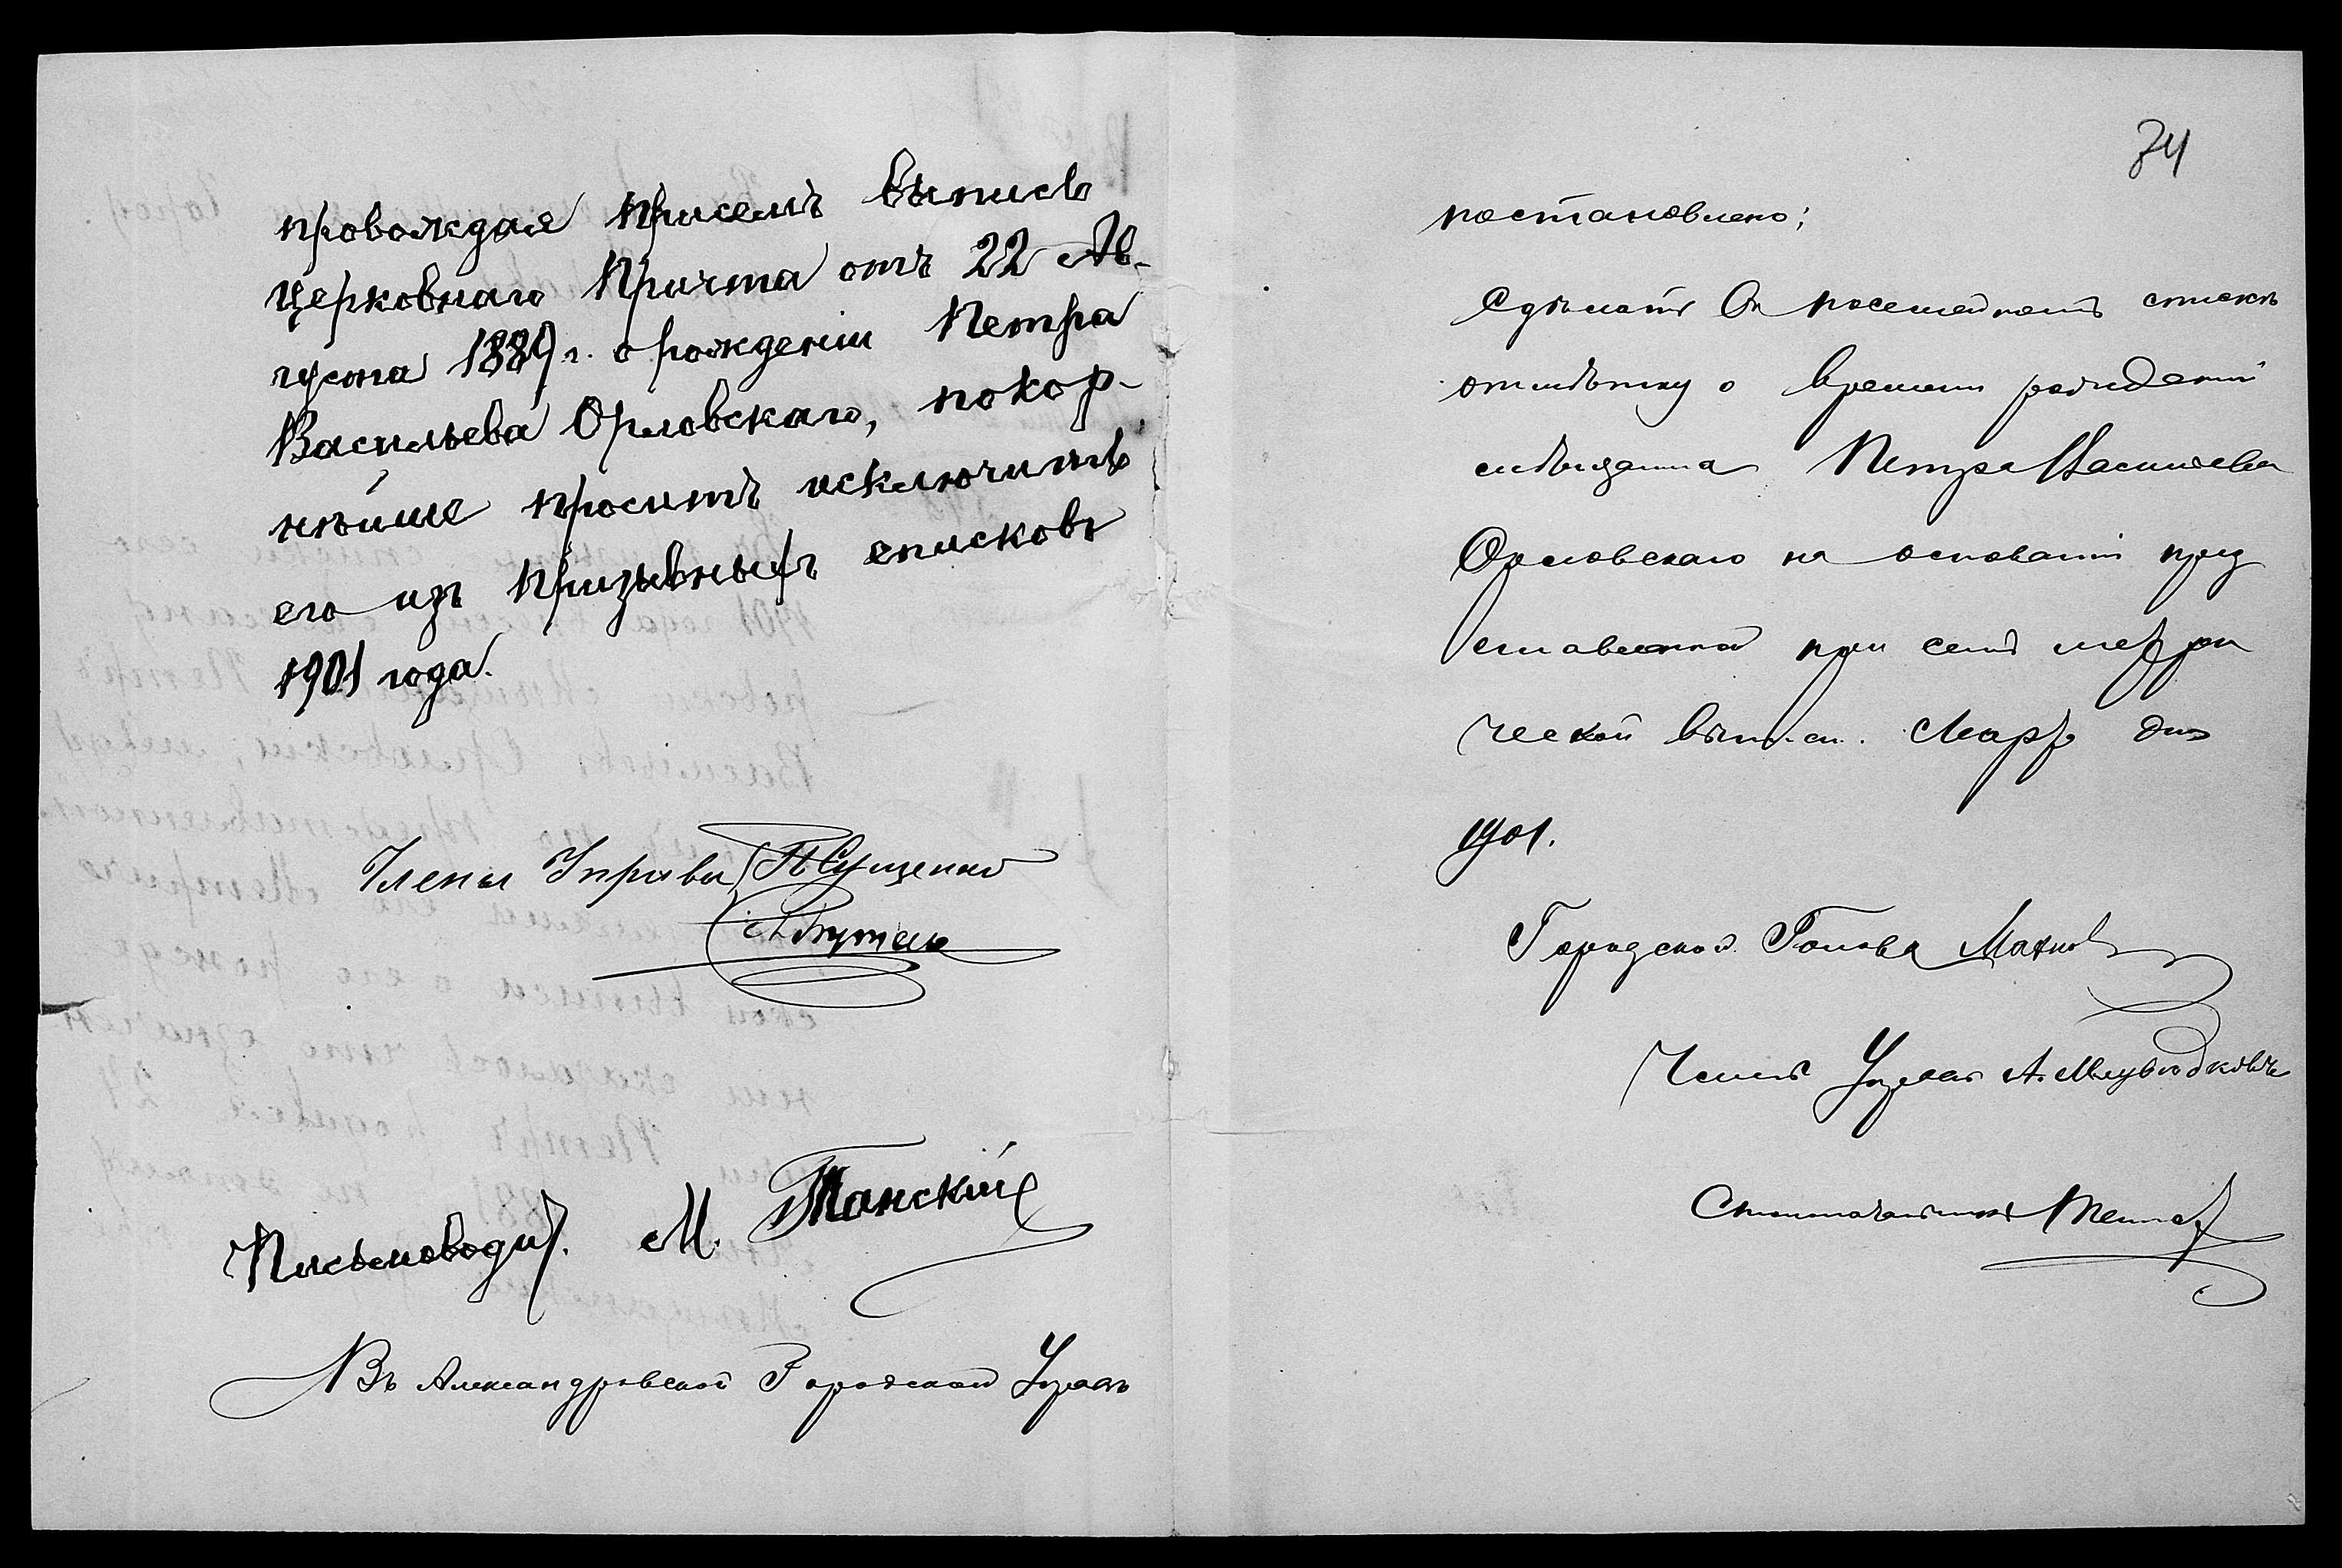 провождая присемъ выпись
церковнаго Причта отъ 22 Ав-
густа 1889 г. о рожденіи Петра
Васильева Орловскаго, покор-
нѣйше проситъ исключить
его изъ призывныхъ списковъ
1901 года.
Члены Управы
Письмовод. М. Танскій
Въ Александровской Городской Управѣ
74
постановлено:
Сдѣлать въ посемейномъ спискѣ
отмѣтку о времени рожденія
мѣщанина Петра Васильева
Орловскаго на основаніи пред
ставленной при семъ метри
ческой выписи. Март дня
1901.
Городской Голова Махно
Членъ Управы А.